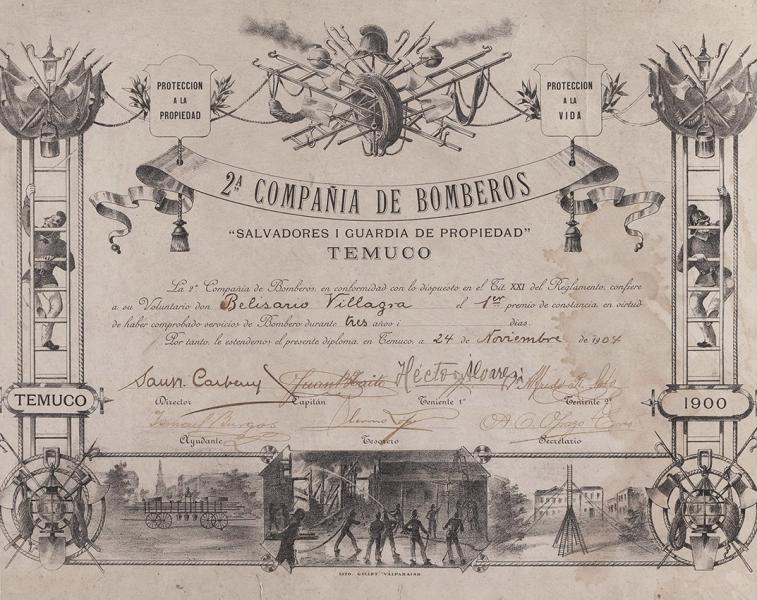 PROTECCION
A LA
PROPIEDAD
PROTECCION
A LA
VIDA
2ª COMPAÑIA DE BOMBEROS
"SALVADORES I GUARDIA DE PROPIEDAD"
TEMUCO
La 2ª Compañia de Bomberos, en conformidad con lo dispuesto en el Tit. XXI del Reglamento, confiere
a su Voluntario don Belisario Villagra el 1er premio de constancia, en virtud
de haber comprobado servicios de Bombero durante tres años i dias.
Por tanto, le estendemos el presente diploma, en Temuco, a 24 de Noviembre de 1904
Director Capitán Teniente 1º Teniente 2º
TEMUCO
1900
Ismael Burgos
Ayudante Tesorero Secretario
LITO. GILLET VALPARAISO